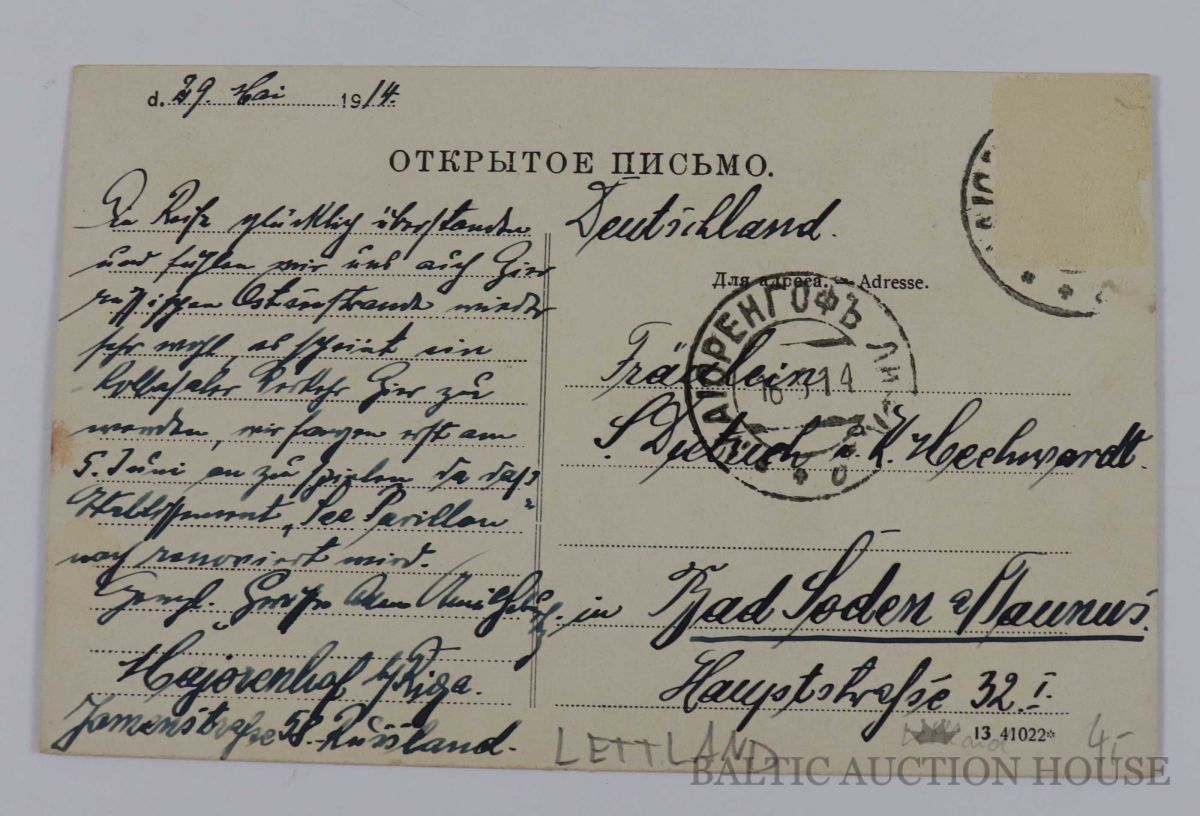 d. 29. Mai 1914.
ОТКРЫТОЕ ПИСЬМО.
Reise glücklich überstanden
und fühlen wir uns auch hier
russischen Ostseestrande wieder
sehr wohl, es scheint ein
kollosaler Verkehr hier zu
werden, wir fangen erst am
5. Juni an zu spielen da das
Etablissement „See Pavillon“
noch renoviert wird.
Majorenhof b/Riga.
Jomenstrasse 58. Russland.
Deutschland.
Для адреса. — Adresse.
Fräulein
S. Dietrich u. K. Hechwardt.
in Bad Soden a/Taunus.
Hauptstrasse 32. I.
МАІОРЕНГОФЪ ЛИФЛ.
14
LETTLAND
13 41022*
4,-
BALTIC AUCTION HOUSE